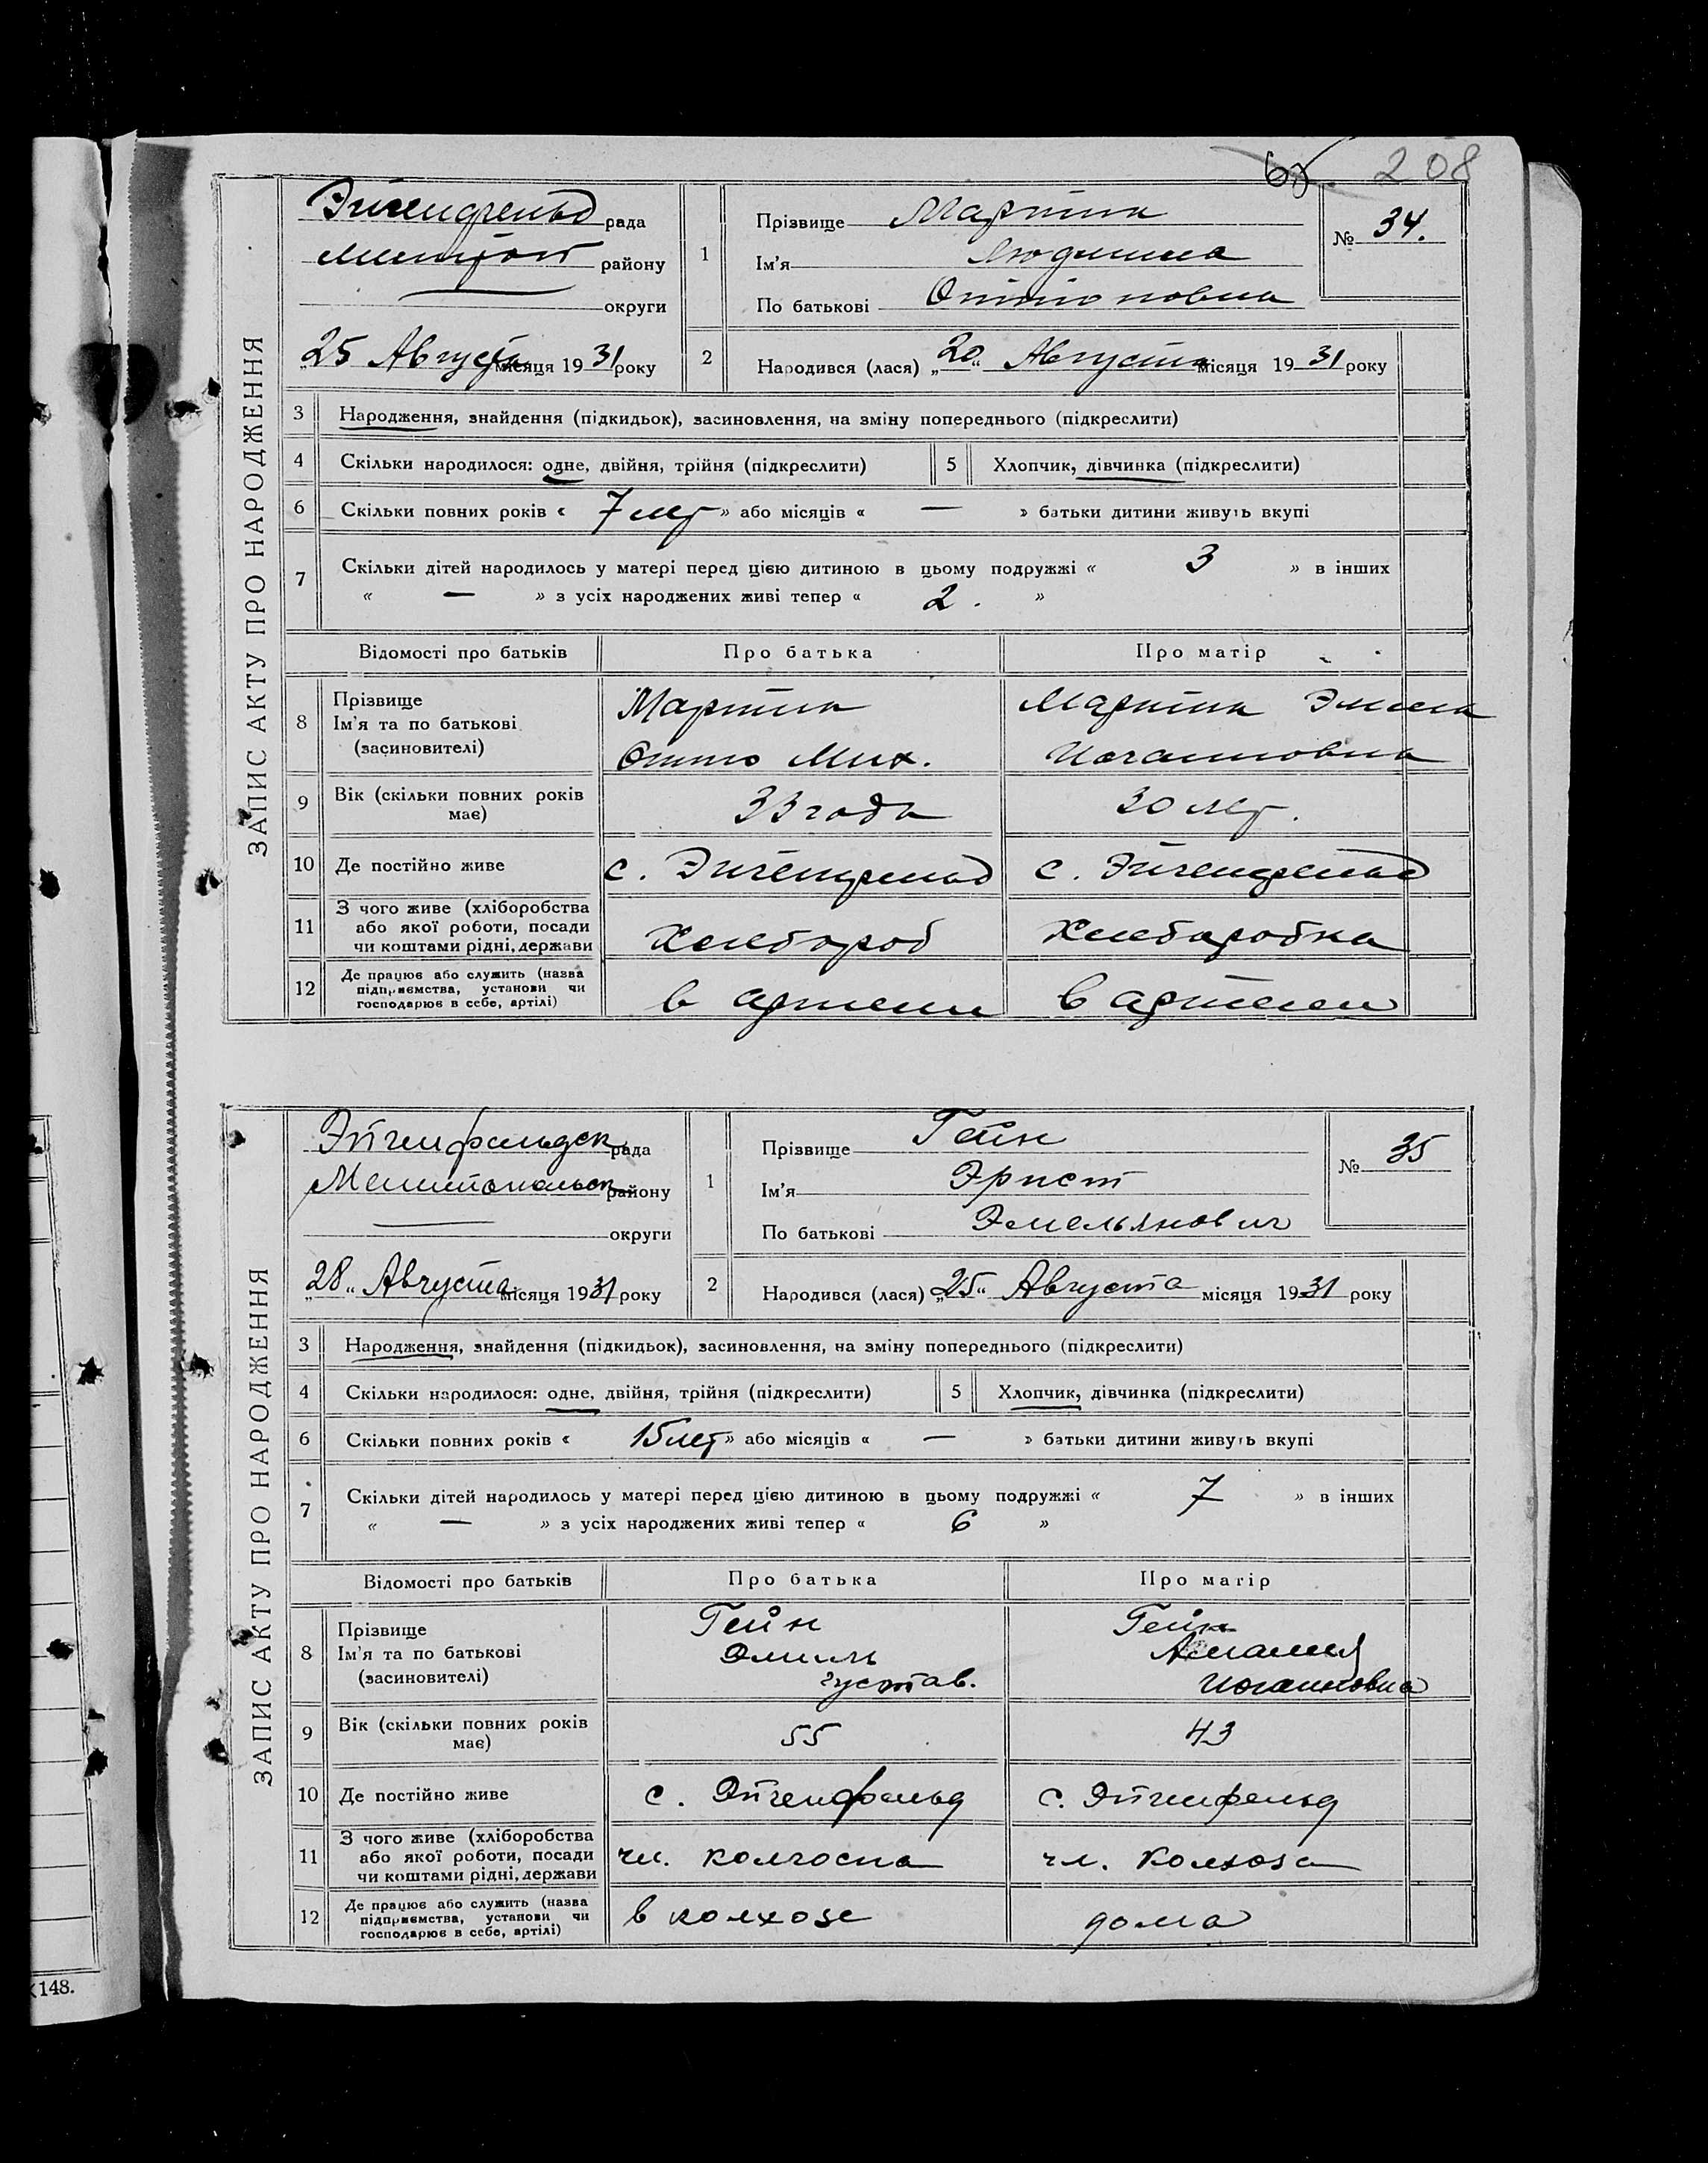 208
ЗАПИС АКТУ ПРО НАРОДЖЕННЯ
Эйгенфельд рада
району
округи
25 Августа місяця 1931 року
1
Прізвище Мартин
Ім'я Людмила
По батькові Оттоновна
№ 34.
2
Народився (лася) „20“ Августа місяця 1931 року
3 Народження, знайдення (підкидьок), засиновлення, на зміну попереднього (підкреслити)
4 Скільки народилося: одне, двійня, трійня (підкреслити) 5 Хлопчик, дівчинка (підкреслити)
6 Скільки повних років « 7 лет » або місяців « — » батьки дитини живуть вкупі
7 Скільки дітей народилось у матері перед цією дитиною в цьому подружжі « 3 » в інших
« — » з усіх народжених живі тепер « 2. »
Відомості про батьків Про батька Про матір
8 Прізвище Ім'я та по батькові (засиновителі)
Мартин Отто Мих.
Мартин Эмма Иоганновна
9 Вік (скільки повних років має) 33 года 30 лет.
10 Де постійно живе с. Эйгенфельд с. Эйгенфельд
11 З чого живе (хліборобства або якої роботи, посади чи коштами рідні, держави Хлебороб Хлеборобка
12 Де працює або служить (назва підприємства, установи чи господарює в себе, артілі) в артели в артели
ЗАПИС АКТУ ПРО НАРОДЖЕННЯ
Эйгенфельдск рада
Мелитопольск району
округи
„28“ Августа місяця 1931 року
1
Прізвище Гейн
Ім'я Эрнст
По батькові Эмельянович
№ 35
2
Народився (лася) „25“ Августа місяця 1931 року
3 Народження, знайдення (підкидьок), засиновлення, на зміну попереднього (підкреслити)
4 Скільки народилося: одне, двійня, трійня (підкреслити) 5 Хлопчик, дівчинка (підкреслити)
6 Скільки повних років « 15 лет » або місяців « — » батьки дитини живуть вкупі
7 Скільки дітей народилось у матері перед цією дитиною в цьому подружжі « 7 » в інших
« — » з усіх народжених живі тепер « 6 »
Відомості про батьків Про батька Про матір
8 Прізвище Ім'я та по батькові (засиновителі)
Гейн Эмиль Густав.
Гейн Амалия Иоганновна
9 Вік (скільки повних років має) 55 43
10 Де постійно живе с. Эйгенфельд с. Эйгенфельд
11 З чого живе (хліборобства або якої роботи, посади чи коштами рідні, держави чл. колгоспа чл. колхоза
12 Де працює або служить (назва підприємства, установи чи господарює в себе, артілі) в колхозе дома
148.